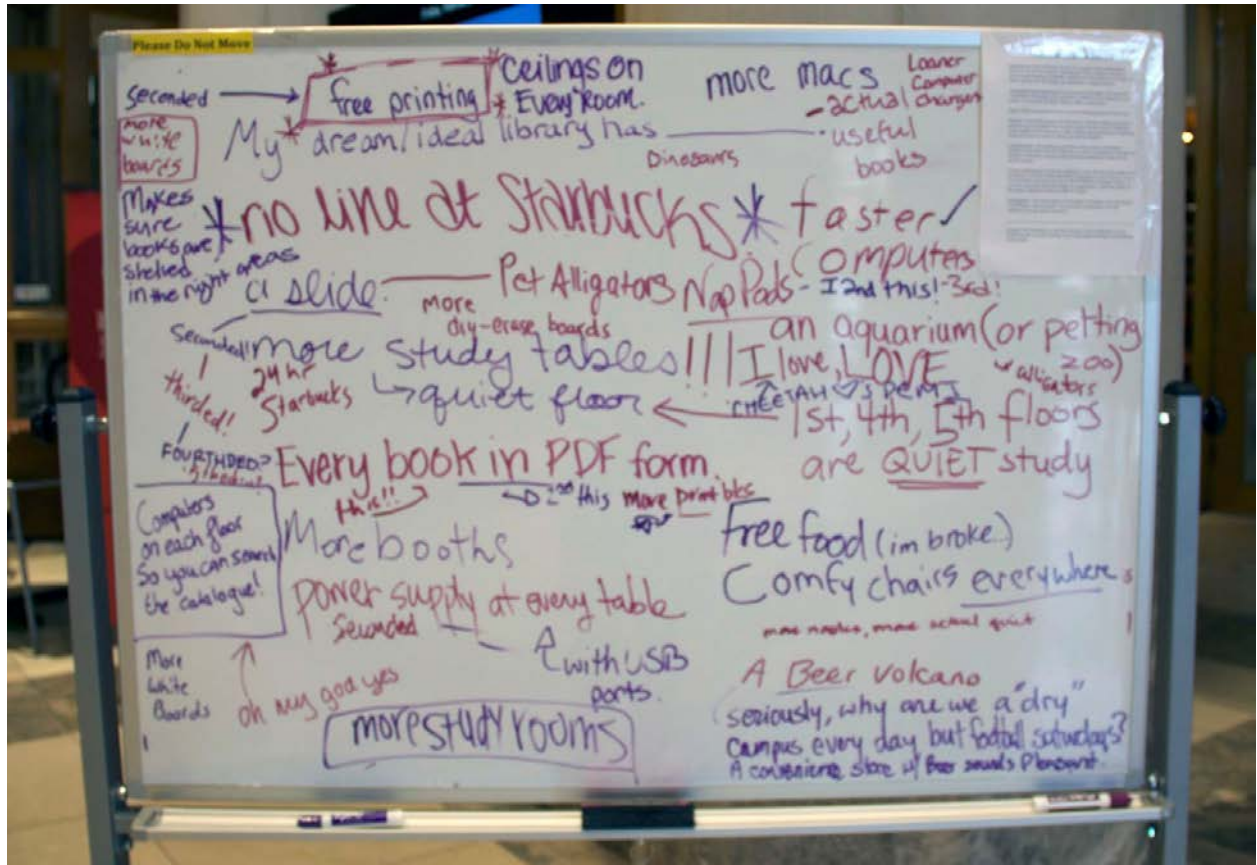 Please Do Not Move
seconded
free printing
Ceilings on
Every Room.
more macs
Loaner
Computer
Chargers
- actual
useful
books
more
white
boards
My dream/ideal library has
Dinosaurs
Makes
sure
books are
shelved
in the right areas
*no line at Starbucks*
faster
Computers
a slide
Pet Alligators
Nap Pods - I 2nd this! - 3rd!
more
dry-erase boards
an aquarium (or petting
zoo)
alligators
Seconded!
thirded!
FOURTHDED?
more study tables!!!
24 hr
Starbucks
quiet floor
I love, LOVE
CHEETAH ♡'S
1st, 4th, 5th floors
are QUIET study
Every book in PDF form.
this!!
this
more print bks
Computers
on each floor
So you can search
the catalogue!
oh my god yes
More booths
Free food (im broke)
Comfy chairs everywhere
power supply at every table
Seconded
with USB
ports.
more actual quiet
More
White
Boards
more study rooms
A Beer volcano
seriously, why are we a "dry"
campus every day but football saturdays?
A convenience store w/ Beer sounds Pleasant.